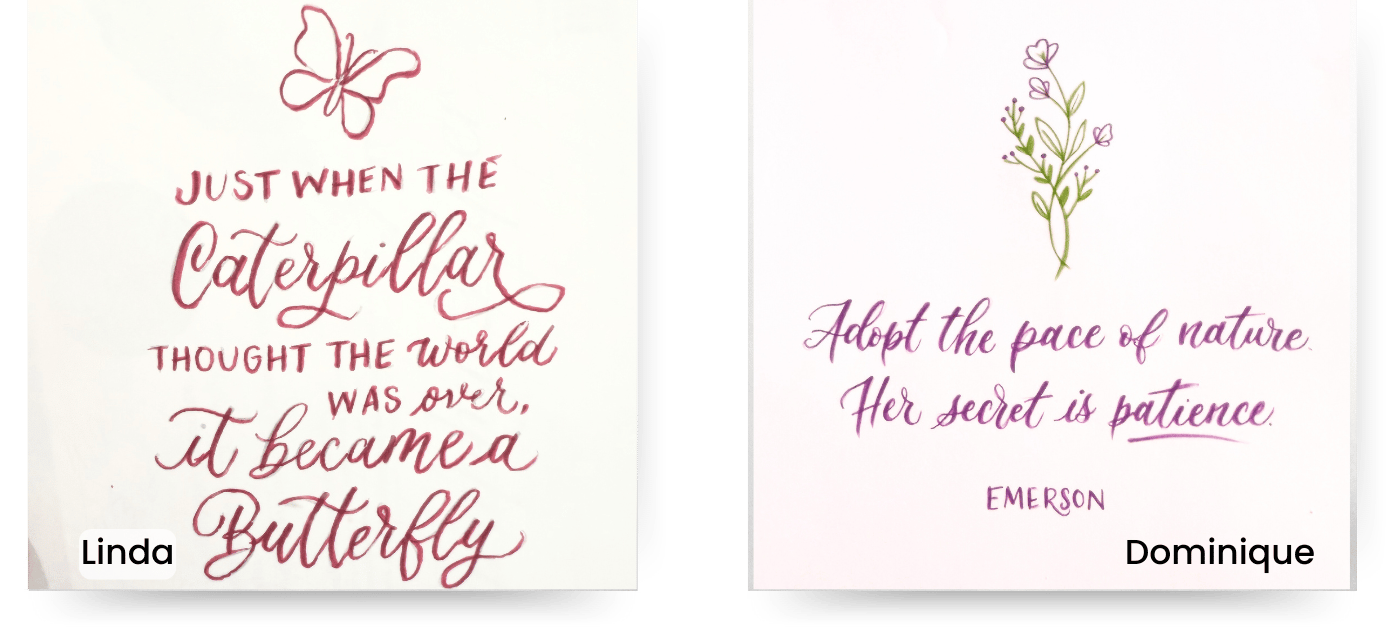 JUST WHEN THE
Caterpillar
THOUGHT THE world
WAS over,
it became a
Butterfly
Linda
Adopt the pace of nature.
Her secret is patience.
EMERSON
Dominique